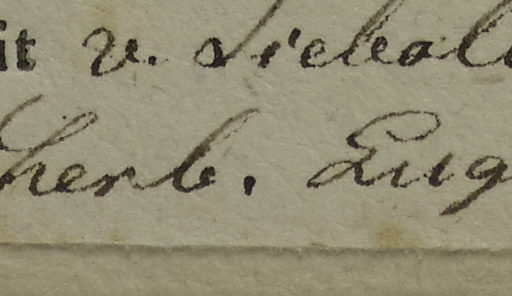 it v. Siebol
herb. Lug